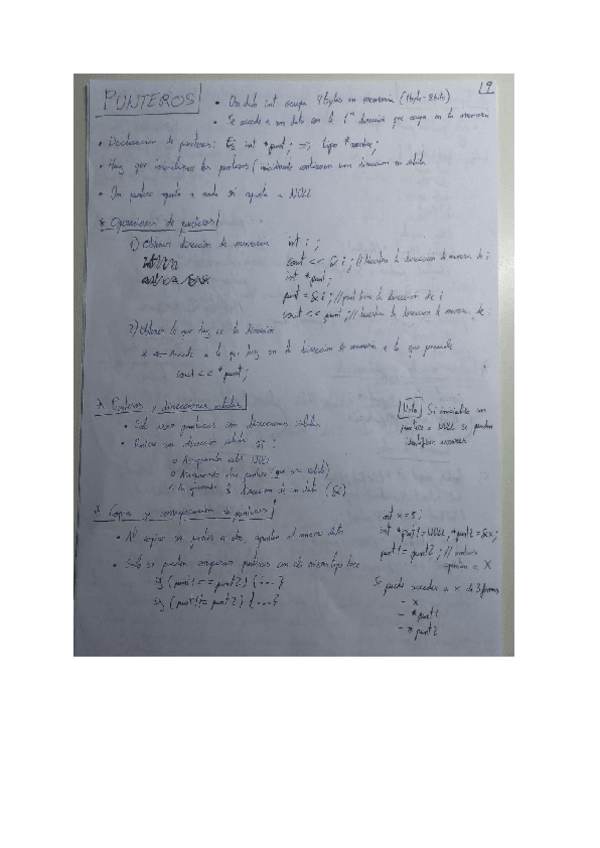 PUNTEROS
• Un dato int ocupa 4 bytes en memoria (1byte - 8bits)
• Se accede a un dato con la 1ª dirección que ocupa en la memoria
• Declaración de punteros: int *punt; tipo *nombre;
• Hay que inicializar los punteros ( inicialmente contienen una dirección no válida
• Un puntero apunta a nada si apunta a NULL
* Operaciones de punteros
1) Obtener dirección de memoria
int i ;
cout << & i ; // Muestra la dirección de memoria de i
int *punt;
punt = & i ; // punt tiene la dirección de i
cout << punt ; // muestra la dirección de memoria de
2) Obtener lo que hay en la dirección
* Accede a lo que hay en la dirección de memoria a la que
cout << *punt ;
* Punteros y direcciones válidas
• Solo usar punteros con direcciones válidas
• Punteros dirección válida si :
o Asignando valor NULL
o Asignando otro puntero (que sea válido)
o Asignando la dirección de un dato (&)
Nota Si inicializo un
puntero a NULL se pueden
identificar errores
* Copia y comparación de punteros
• Al copiar un puntero a otro, apuntan al mismo dato
• Solo se pueden comparar punteros con el mismo tipo base
if ( punt1 == punt2 ) { ... }
if ( punt1 != punt2 ) { ... }
int x = 5 ;
int *punt1 = NULL, *punt2 = &x;
punt1 = punt2 ; // ambos
apuntan a X
Se puede acceder a x de 3 formas
- x
- * punt1
- * punt2